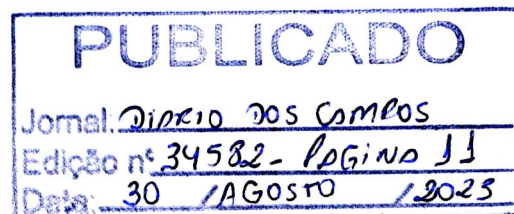 PUBLICADO
Jornal: DIÁRIO DOS CAMPOS
Edição nº 34582 - PÁGINA 11
Data: 30 / AGOSTO / 2023